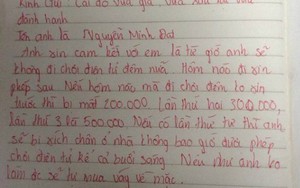 Kính Chú : Cái đồ vừa già, vừa xấu
đành hanh
Tên anh là Nguyễn Minh Đạt
Anh xin cam kết với em là từ giờ anh sẽ
không đi chơi điện tử đêm nữa. Hôm nào đi xin
phép sau. Nếu hôm nào mà đi chơi đêm ko xin
trước thì bị mất 200.000. Lần thứ hai 300.000,
lần thứ 3 là 500.000. Nếu có lần thứ tư thì anh
sẽ bị xích chân ở nhà không bao giờ được phép
chơi điện tử kể cả buổi sáng. Nếu như anh ko
làm đc sẽ tự mua váy về mặc.